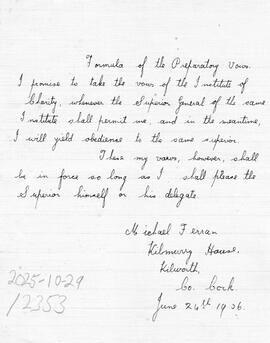 Formula of the Preparatory Vows.
I promise to take the vows of the Institute of
Charity, whenever the Superior General of the same
Institute shall permit me, and in the meantime,
I will yield obedience to the same superior.
These my vows, however, shall
be in force so long as I shall please the
Superior himself or his delegate.
Michael Ferran
Kilmurry House,
Kilworth,
Co. Cork.
June 24th 1926.
2025-10-29
/2353